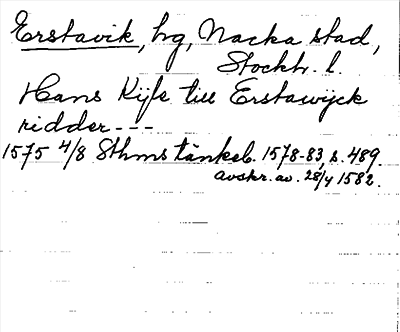 Erstavik, hg, Nacka stad,
Stockh. l.
Hans Kijle till Erstawijck
ridder---
1575 4/8 Sthms tänkeb. 1578-83, s. 489.
avskr. av. 28/4 1582.